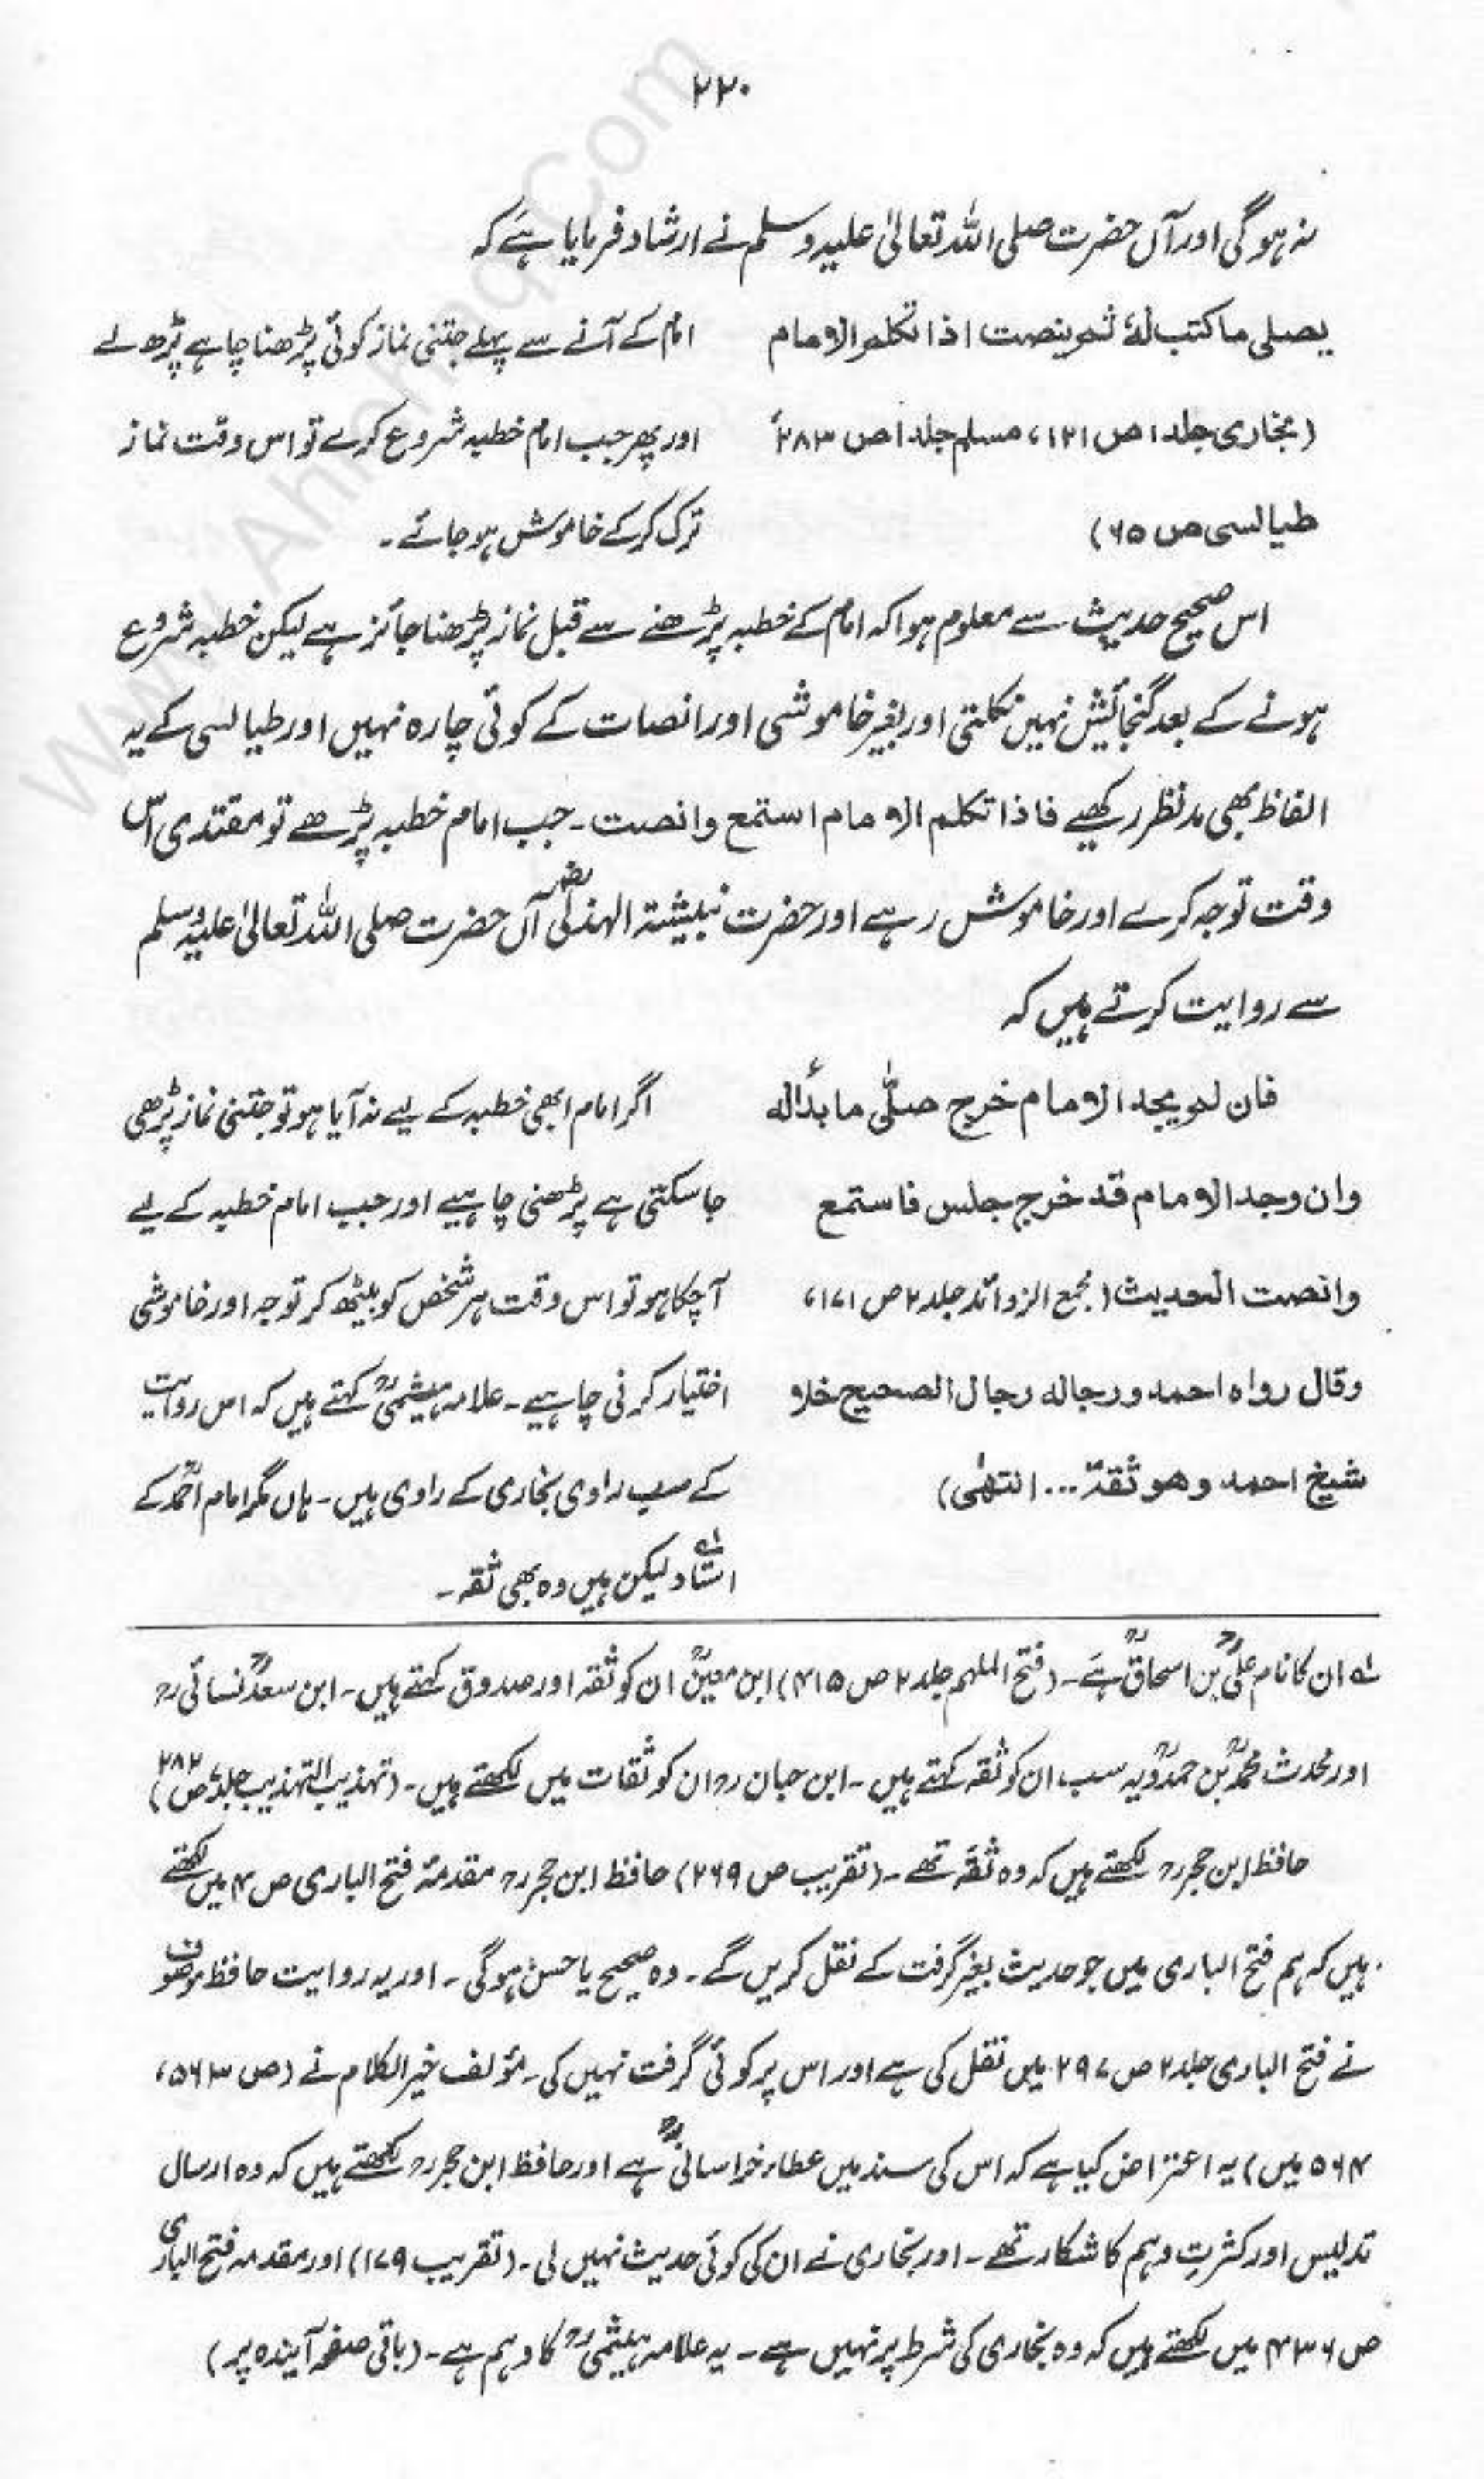 ۲۲۰
نہ ہوگی اور آں حضرت صلی اللہ تعالیٰ علیہ وسلم نے ارشاد فرمایا ہے کہ
یصلی ما کتب لہٗ ثم ینصت اذا تکلم الامام
(بخاری جلد ۱ ص ۱۲۱، مسلم جلد ۱ ص ۲۸۳
طیالسی ص ۶۵)
امام کے آنے سے پہلے جتنی نماز کوئی پڑھنا چاہے پڑھ لے
اور پھر جب امام خطبہ شروع کرے تو اس وقت نماز
ترک کرکے خاموش ہو جائے۔
اس صحیح حدیث سے معلوم ہوا کہ امام کے خطبہ پڑھنے سے قبل نماز پڑھنا جائز ہے لیکن خطبہ شروع
ہونے کے بعد گنجائش نہیں نکلتی اور بغیر خاموشی اور انصات کے کوئی چارہ نہیں اور طیالسی کے یہ
الفاظ بھی مدنظر رکھیے فاذا تکلم الامام استمع وانصت۔ جب امام خطبہ پڑھے تو مقتدی اس
وقت توجہ کرے اور خاموش رہے اور حضرت نبیشۃ الہذلیؓ آں حضرت صلی اللہ تعالیٰ علیہ وسلم
سے روایت کرتے ہیں کہ
فان لم یجد الامام خرج صلّٰی ما بدألہ
وان وجد الامام قد خرج جلس فاستمع
وانصت الحدیث (مجمع الزوائد جلد ۲ ص ۱۷۱،
وقال رواہ احمد ورجالہ رجال الصحیح خلا
شیخ احمد وھو ثقۃ ... انتھٰی)
اگر امام ابھی خطبہ کے لیے نہ آیا ہو تو جتنی نماز پڑھی
جا سکتی ہے پڑھنی چاہیے اور جب امام خطبہ کے لیے
آچکا ہو تو اس وقت ہر شخص کو بیٹھ کر توجہ اور خاموشی
اختیار کرنی چاہیے۔ علامہ ہیثمیؒ کہتے ہیں کہ اس روایت
کے سب راوی بخاری کے راوی ہیں۔ ہاں مگر امام احمدؒ کے
استاد لیکن ہیں وہ بھی ثقہ۔
لہ ان کا نام علیؒ بن اسحاقؒ ہے۔ (فتح الملہم جلد ۲ ص ۴۱۵) ابن معینؒ ان کو ثقہ اور صدوق کہتے ہیں۔ ابن سعدؒ نسائیؒ
اور محدث محمدؒ بن حمدویہؒ سب ان کو ثقہ کہتے ہیں۔ ابن حبانؒ ان کو ثقات میں لکھتے ہیں۔ (تہذیب التہذیب جلد ۷ ص ۲۸۲)
حافظ ابن حجرؒ لکھتے ہیں کہ وہ ثقہ تھے۔ (تقریب ص ۲۶۹) حافظ ابن حجرؒ مقدمۂ فتح الباری ص ۴ میں لکھتے
ہیں کہ ہم فتح الباری میں جو حدیث بغیر گرفت کے نقل کریں گے۔ وہ صحیح یا حسن ہوگی۔ اور یہ روایت حافظ موصوف
نے فتح الباری جلد ۲ ص ۲۹۷ میں نقل کی ہے اور اس پر کوئی گرفت نہیں کی۔ مؤلف خیر الکلام نے (ص ۵۶۳،
۵۶۴ میں) یہ اعتراض کیا ہے کہ اس کی سند میں عطاء خراسانیؒ ہے اور حافظ ابن حجرؒ لکھتے ہیں کہ وہ ارسال
تدلیس اور کثرتِ وہم کا شکار تھے۔ اور بخاری نے ان کی کوئی حدیث نہیں لی۔ (تقریب ۱۷۹) اور مقدمہ فتح الباری
ص ۴۳۶ میں لکھتے ہیں کہ وہ بخاری کی شرط پر نہیں ہے۔ یہ علامہ ہیثمیؒ کا وہم ہے۔ (باقی صفحہ آیندہ پر)